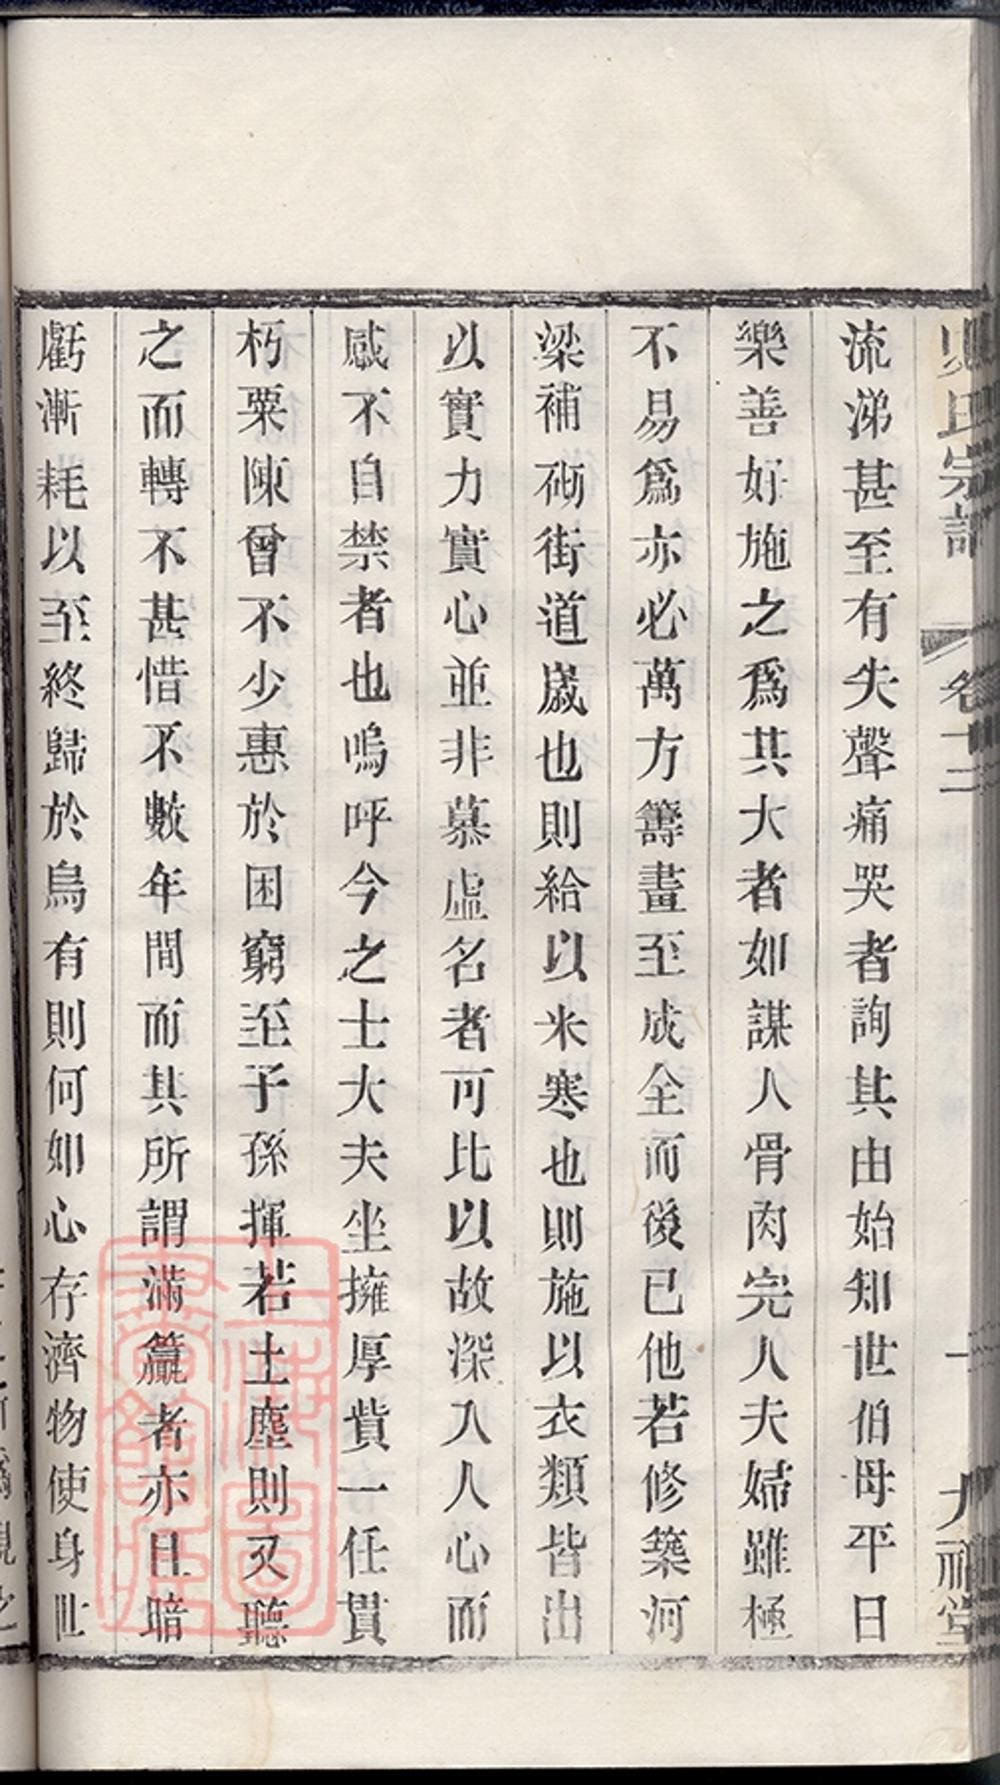 宗譜
卷十二
九福堂
流涕甚至有失聲痛哭者詢其由始知世伯母平日
樂善好施之爲其大者如謀人骨肉完人夫婦雖極
不易爲亦必萬方籌畫至成全而後已他若修築河
梁補砌街道歲也則給以米寒也則施以衣類皆出
以實力實心並非慕虛名者可比以故深入人心而
感不自禁者也嗚呼今之士大夫坐擁厚貲一任貫
朽粟陳曾不少惠於困窮至子孫揮若土塵則又聽
之而轉不甚惜不數年間而其所謂滿籯者亦且暗
虧漸耗以至終歸於烏有則何如心存濟物使身世
上海圖書館藏